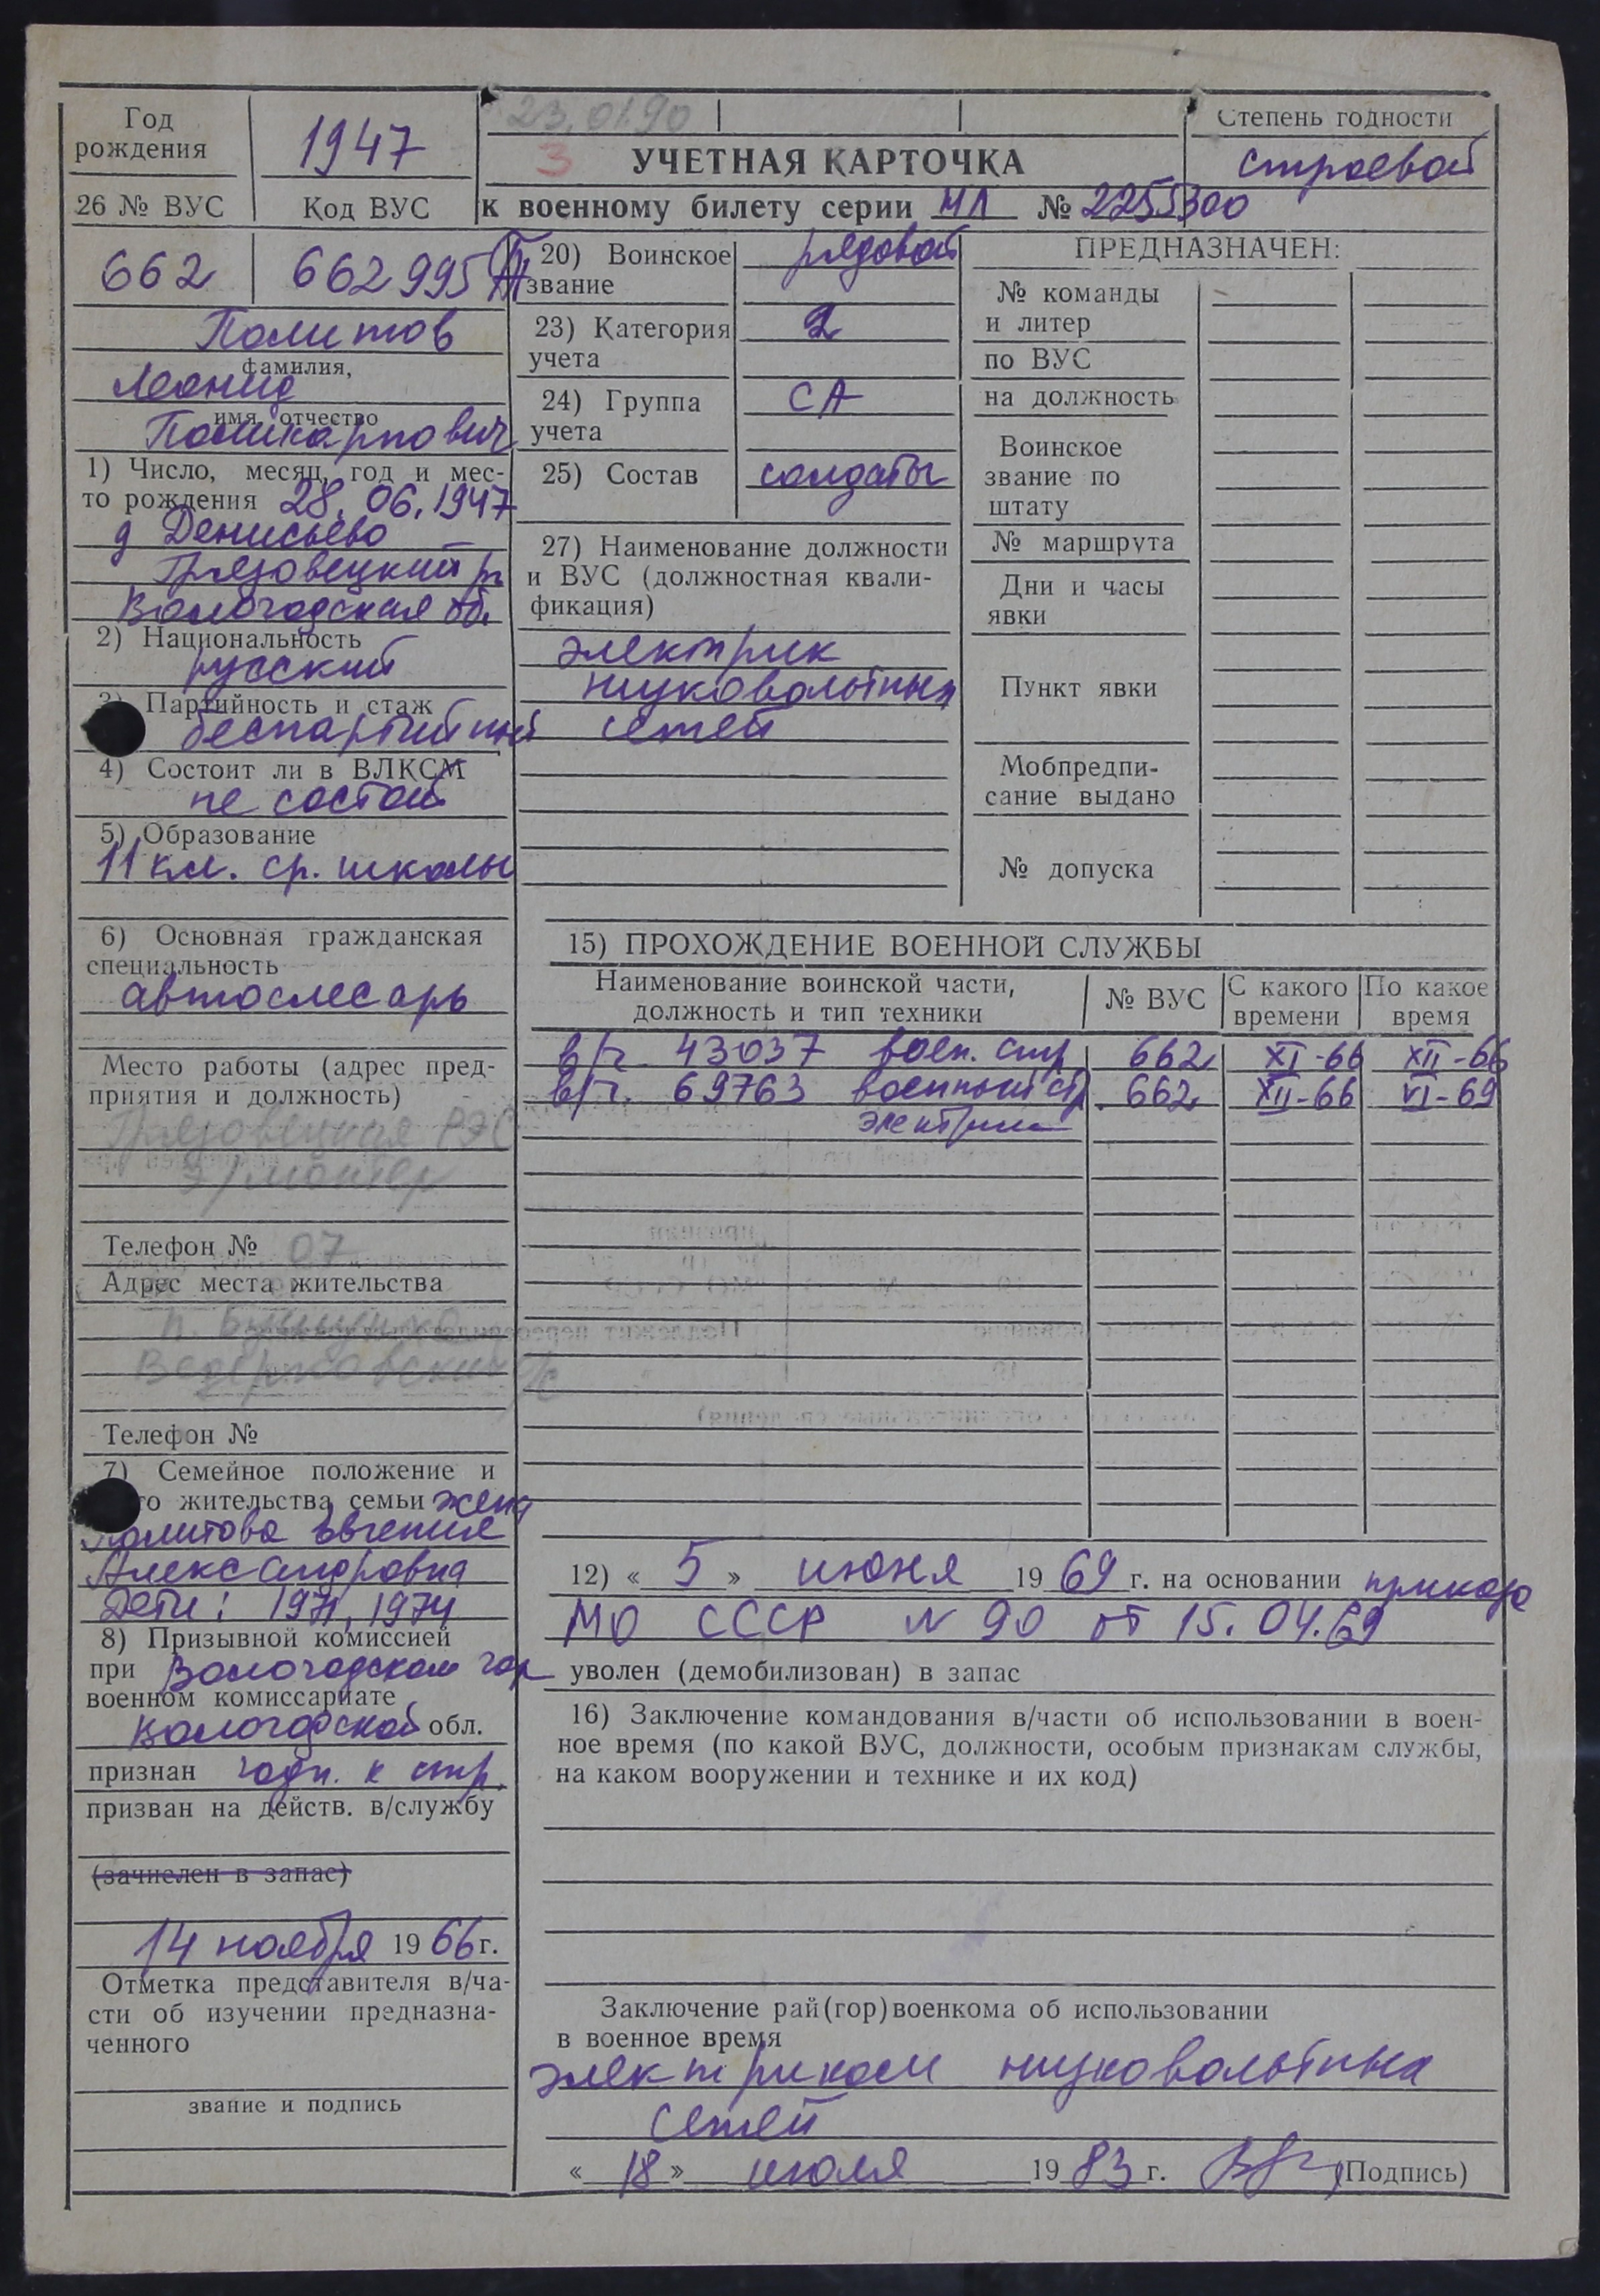 Год рождения
1947
23.01.90
3
УЧЕТНАЯ КАРТОЧКА
к военному билету серии НЛ № 2255300
Степень годности
строевой
26 № ВУС
Код ВУС
662
662995
Политов
фамилия,
Леонид
имя, отчество
Поликарпович
1) Число, месяц, год и мес-
то рождения 28.06.1947
д Денисьево
Грязовецкий р
Вологодская об.
2) Национальность
русский
3) Партийность и стаж
беспартийный
4) Состоит ли в ВЛКСМ
не состоит
5) Образование
11 кл. ср. школы
6) Основная гражданская
специальность
автослесарь
Место работы (адрес пред-
приятия и должность)
Грязовецкая РЭС
э/монтер
Телефон № 07
Адрес места жительства
п.
Ведерковский с/с
Телефон №
7) Семейное положение и
то жительства семьи жена
Политова Евгения
Александровна
Дети: 1971, 1974
8) Призывной комиссией
при Вологодском гор
военном комиссариате
Вологодской обл.
признан годн. к стр.
призван на действ. в/службу
(зачислен в запас)
14 ноября 1966 г.
Отметка представителя в/ча-
сти об изучении предназна-
ченного
звание и подпись
20) Воинское звание
рядовой
23) Категория учета
2
24) Группа учета
СА
25) Состав
солдаты
27) Наименование должности
и ВУС (должностная квали-
фикация)
электрик
низковольтных
сетей
ПРЕДНАЗНАЧЕН:
№ команды
и литер
по ВУС
на должность
Воинское
звание по
штату
№ маршрута
Дни и часы
явки
Пункт явки
Мобпредпи-
сание выдано
№ допуска
15) ПРОХОЖДЕНИЕ ВОЕННОЙ СЛУЖБЫ
Наименование воинской части,
должность и тип техники
№ ВУС
С какого
времени
По какое
время
в/ч 43037 воен. стр 662 XI-66 XII-66
в/ч. 69763 военный стр. 662 XII-66 VI-69
электрик
12) « 5 » июня 1969 г. на основании приказа
МО СССР N 90 от 15.04.69
уволен (демобилизован) в запас
16) Заключение командования в/части об использовании в воен-
ное время (по какой ВУС, должности, особым признакам службы,
на каком вооружении и технике и их код)
Заключение рай(гор)военкома об использовании
в военное время
электриком низковольтных
сетей
« 18 » июля 1983 г. (Подпись)